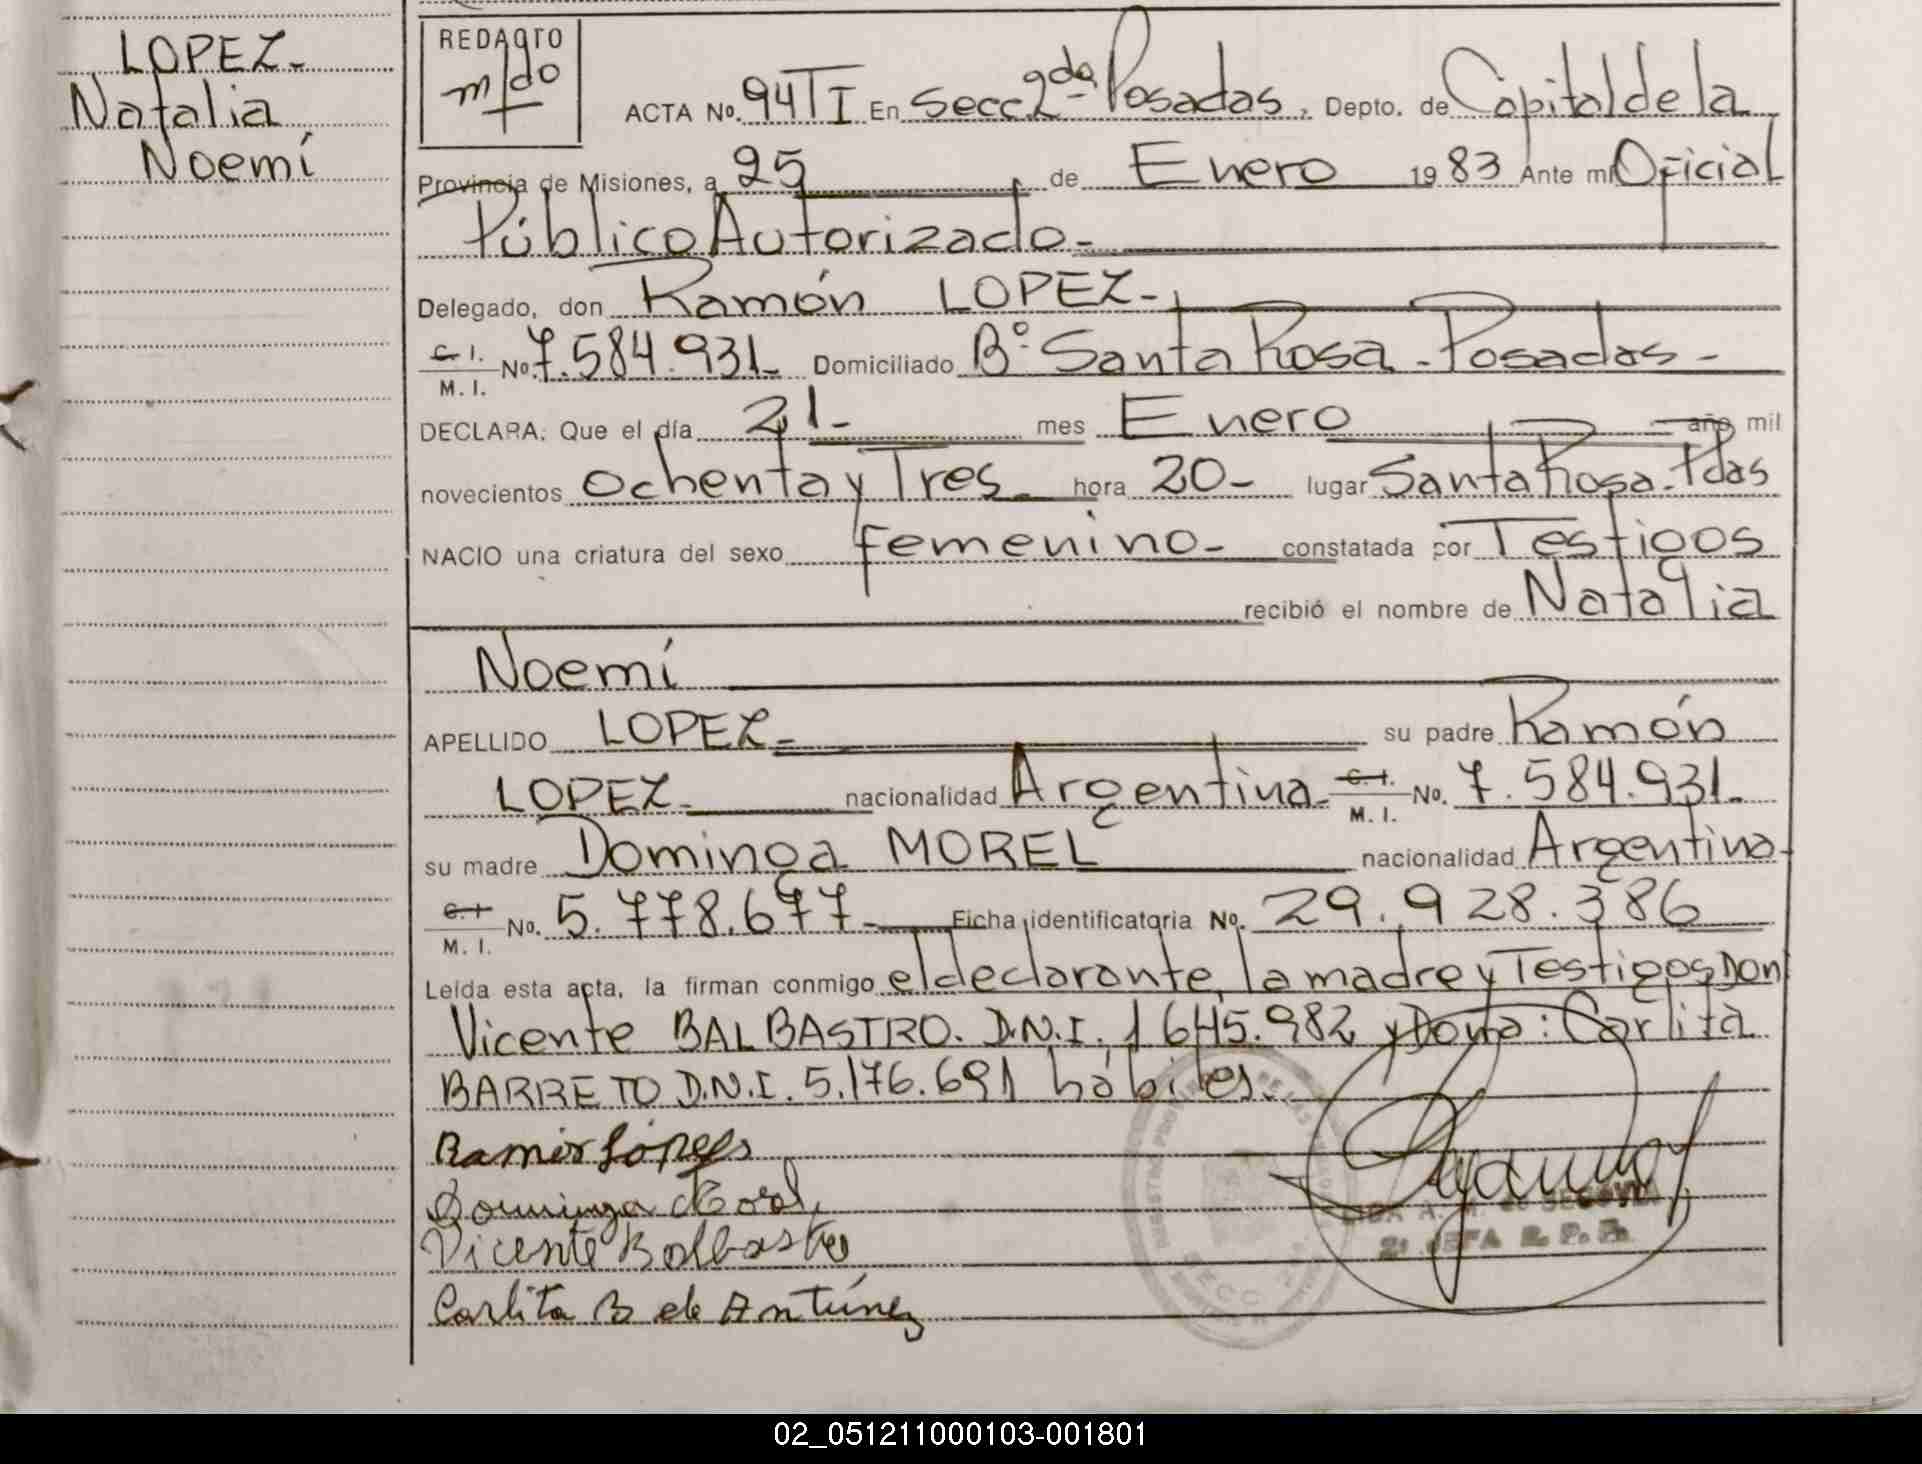 LOPEZ-
Natalia
Noemí
REDACTO
ACTA No. 94 TI En Secc. 2da- Posadas, Depto. de Capital de la
Provincia de Misiones, a 25 de Enero 1983 Ante mi Oficial
Público Autorizado-
Delegado, don Ramón LOPEZ-
C. I.
M. I. No. 7.584.931- Domiciliado Bº Santa Rosa - Posadas -
DECLARA: Que el día 21- mes Enero año mil
novecientos ochenta y Tres- hora 20- lugar Santa Rosa-Pdas
NACIO una criatura del sexo femenino- constatada por Testigos
recibió el nombre de Natalia
Noemí
APELLIDO LOPEZ- su padre Ramón
LOPEZ- nacionalidad Argentina- C. I.
M. I. No. 7.584.931-
su madre Dominga MOREL nacionalidad Argentina-
C. I
M. I. No. 5.778.677- Ficha identificatoria No. 29.928.386
Leída esta acta, la firman conmigo el declarante, la madre y Testigos Don
Vicente BALBASTRO. D.N.I. 1 645.982 y Doña: Carlita
BARRETO D.N.I. 5.176.691 hábiles.
Ramón López
Dominga Morel
Vicente Balbastro
Carlita B de Antúnez
SECC
A. M. de SEGOVIA
2ª JEFA R. P. P.
02_051211000103-001801